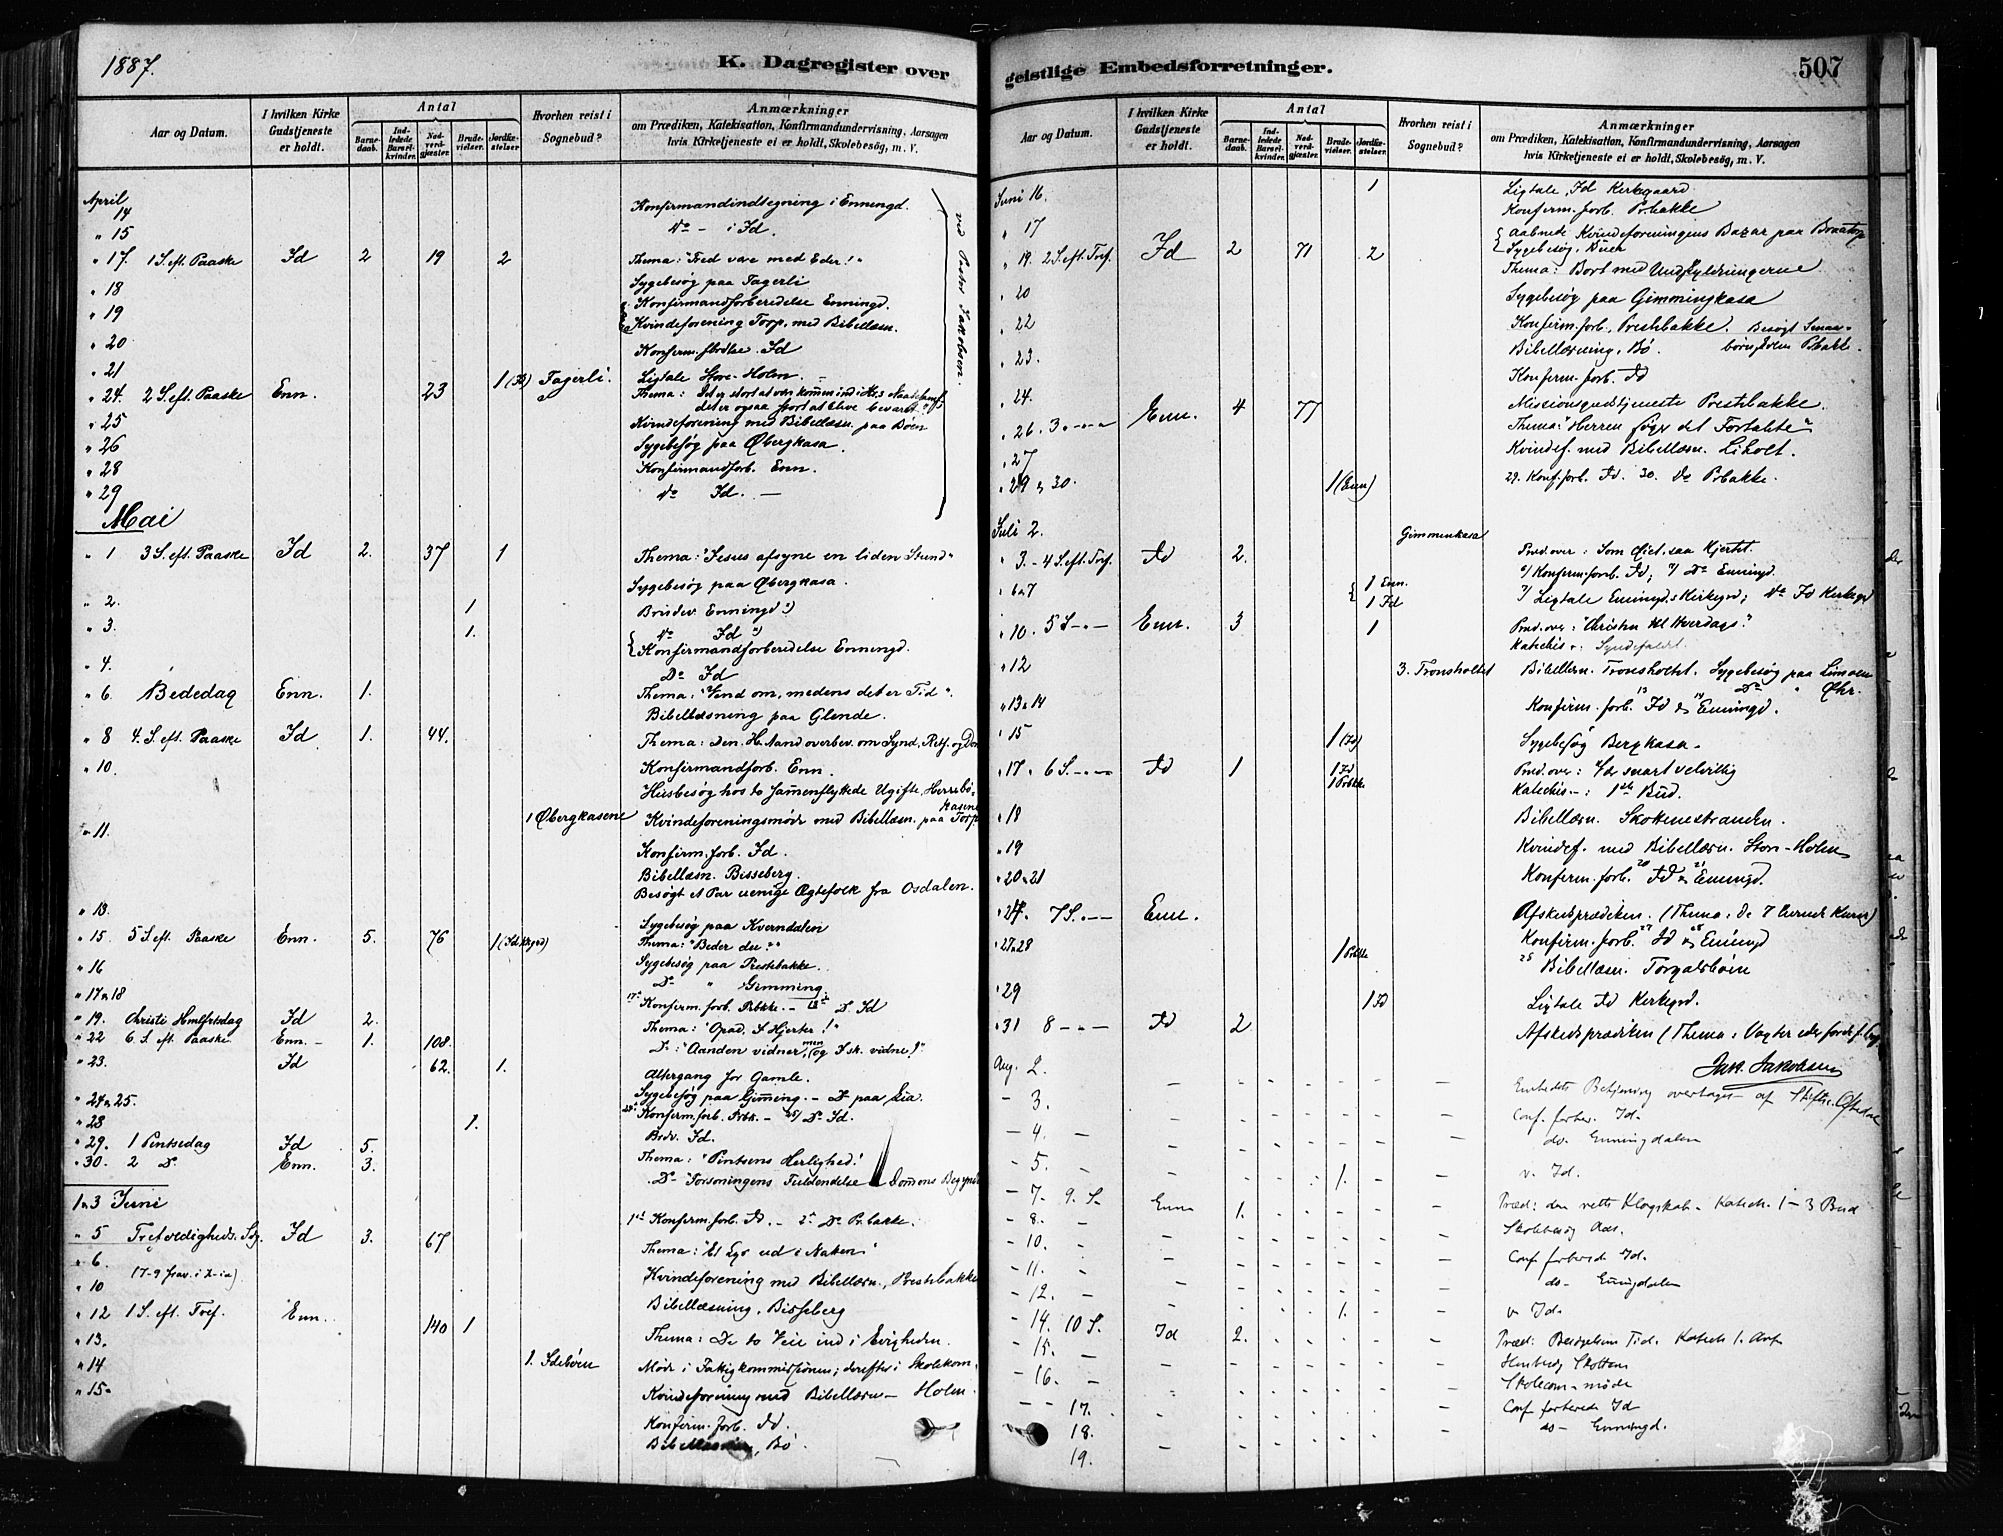 1887.
K. Dagregister over
Aar og Datum.
I hvilken Kirke Gudstjeneste er holdt.
Antal
Barnedaab.
Indledede Barselkvinder.
Nadverdgjæster.
Brudevielser.
Jordfæstelser.
Hvorhen reist i Sognebud?
Anmærkninger
om Prædiken, Katekisation, Konfirmandundervisning, Aarsagen
hvis Kirketjeneste ei er holdt, Skolebesøg, m. V.
April
14 Konfirmandindtegning i Enningd.
" 15 Do - i Id.
" 17 1 S. eft. Paaske Id 2 19 2 Thema: "Fred være med Eder!"
" 18 Sygebesøg paa Fagerli
" 19 Konfirmandforberedelse Enningd.
Kvindeforening Torp, med Bibellæsn.
" 20
Konfirm. Id
" 21 Ligtale Store-Holm.
" 24. 2 S. eft. Paaske Enn. 23 1 (Id) Fagerli. Thema: Det er stort at være kommen ind i
det er ogsaa stort at blive bevaret
" 25 Kvindeforening med Bibellæsn. paa Bøen
" 26 Sygebesøg paa Øbergkasa.
" 28 Konfirmandforb. Enn.
" 29 Do Id. -
ved Pastor Jakobsen.
Mai
" 1 3 S. eft. Paaske Id 2. 37 1 Thema: "Jesus afsyne en liden Stund"
Sygebesøg paa Øbergkasa.
" 2. 1 Brudev. Enningd 2)
" 3. 1. Do Id 3)
Konfirmandforberedelse Enningd.
" 4. Do Id
" 6. Bededag Enn. 1. Thema: "Vend om, medens det er Tid".
Bibellæsning paa Glende.
" 8 4. S. eft. Paaske Id 1. 44. Thema: Den H. Aand overbev. om Synd, Retf. og Dom
" 10. Konfirmandforb. Enn.
Husbesøg hos to sammenflyttede Ugifte,
1 Øbergkasene Kvindeforeningsmøde med Bibellæsn. paa Torp
" 11.
Konfirm. forb. Id.
Bibellæsn. Bisseberg.
Besøgt et Par uenige Ægtefolk fra Osdalen.
" 13.
Sygebesøg paa Kverndalen
" 15. 5 S. eft. Paaske Enn. 5. 76 1 (Id Krgd) Thema: "Beder du?"
" 16 Sygebesøg paa Prestebakke.
" 17 & 18 Do " Gimming.
17de Konfirm. forb. Prbkke. - 18de Do Id
" 19. Christi Hmlfrtsdag Id 2. Thema: "Opad, I Hjerter!"
" 22 6. S. eft. Paaske Enn. - 1. 108. Do: "Aanden vidner, men og I sk. vidne!"
" 23. Id 62. 1. Altergang for Gamle.
" 24 & 25. Sygebesøg paa Gimming. - Do paa Lia.
Konfirm. forb. Prbk. - 25/ Do Id.
" 28 1. Brdv. Id.
" 29. 1 Pintsedag Id 5. Thema: "Pintsens Herlighed!
" 30. 2 Do Enn. 3. Do "Forsoningens Fuldendelse & Dommens Begynd
1 & 3 Juni 1ste Konfirm. forb. Id. - 3de Do Pr.bakke.
" 5 Trefoldigheds. Sdg. Id 3. 67 Thema: "Et Lys ud i Natten"
" 6. Kvindeforening med Bibellæsn., Prestebakke
" 10 Bibellæsning, Bisseberg
" 12 1 S. eft. Tref. Enn. 140 1 Thema: De to Veie ind i Evigheden.
" 13. 1. Idebøen Møde i Fattigkommissionen; derefter i Skolekom.
" 14 Kvindeforening med Bibellæsn - Holm.
" 15 Konfirm. forb. Id.
Bø.
geistlige Embedsforretninger.
507
Aar og Datum.
I hvilken Kirke Gudstjeneste er holdt.
Antal
Barnedaab.
Indledede Barselkvinder.
Nadverdgjæster.
Brudevielser.
Jordfæstelser.
Hvorhen reist i Sognebud?
Anmærkninger
om Prædiken, Katekisation, Konfirmandundervisning, Aarsagen
hvis Kirketjeneste ei er holdt, Skolebesøg, m. V.
Juni 16. 1 Ligtale, Id Kirkegaard
" 17 Konfirm. forb. Prbakke
Aabnede Kvindeforeningens Bazar paa Braatorp
Sygebesøg,
" 19. 2 S. eft. Tref. Id 2 71 2 Thema: Bort med Undskyldningerne
" 20 Sygebesøg paa Gimmingkasa
" 22 Konfirm. forb. Prestebakke. Besøgt Smaabørnsskolen Pbakk.
" 23. Bibellæsning, Bø.
Konfirm. forb. Id
" 24. Missionsgudstjeneste Prestebakke.
" 26. 3 - " - Enn. 4 77 Thema: "Herren søger det Fortabte"
" 27 Kvindef. med Bibellæsn. Liholt.
" 29 & 30. 1 (Enn) 29. Konf. forb. Id. 30. Do Prbakke.
Juli 2. Gimmenkasa
" 3. - 4 S. eft. Tref. Id 2. Præd. over: Som Øiet, saa Hjertet.
6/ Konfirm. forb. Id; 7/ Do Enningd.
" 6 & 7 1 Enn. 1 Id 7/ Ligtale Enningd.s Kirkegrd; Do Id Kirkegrd
" 10. 5 S - " - Enn. 3 1 Præd. over: "Christen til Hverdags."
Katechis. : Syndefaldet.
" 12 3. Tronsholtet Bibellæsn. Tronsholtet. Sygebesøg paa
Do "
" 13 & 14 Konfirm. forb. Id & Enningd.
" 15 1 (Id) Sygebesøg Bergkasa.
" 17. 6 S. - " - Id 1 1 Id 1 Prbkk. Præd. over: Vær snart velvillig
Katechis. - : 1ste Bud.
" 18 Bibellæsn. Skottenestranden.
" 19 Kvindef. med Bibellæsn. Store-Holm
" 20 & 21 Konfirm. forb. Id & Enningd.
" 24. 7 S. - " - Enn. Afskedsprædiken. (Thema: de 7 Kurve)
" 27 & 28 1 Prbkke Konfirm. forb. Id & Enningd
Bibellæsn. Torgalsbøen
" 29 1 Id Ligtale Id Kirkegrd.
" 31 8 - " - Id 2 Afskedsprædiken (Thema: Vogter eder for de f.
Jak. Jakobsen
Aug. 2. Embedets Betjening overtages af Stiftsc.
- 3. Conf. forber. Id.
- 4. do. Enningdalen
- 5. 1. v. Id.
- 7. 9. S. Enn 1. Præd: den rette Klogskab. Katech. 1-3 Bud
- 8. Skolebesøg
- 10. Conf. forbered Id.
- 11. do- Enningdalen
- 12. 1. v Id.
- 14. 10 S. Id 2. Præd: Besøgelsens Tid. Katech. 1. Art
- 15. Skotten
- 16. Skolecom. møde
- 17. Conf. forberede Id
18. do - Enningd.
19.